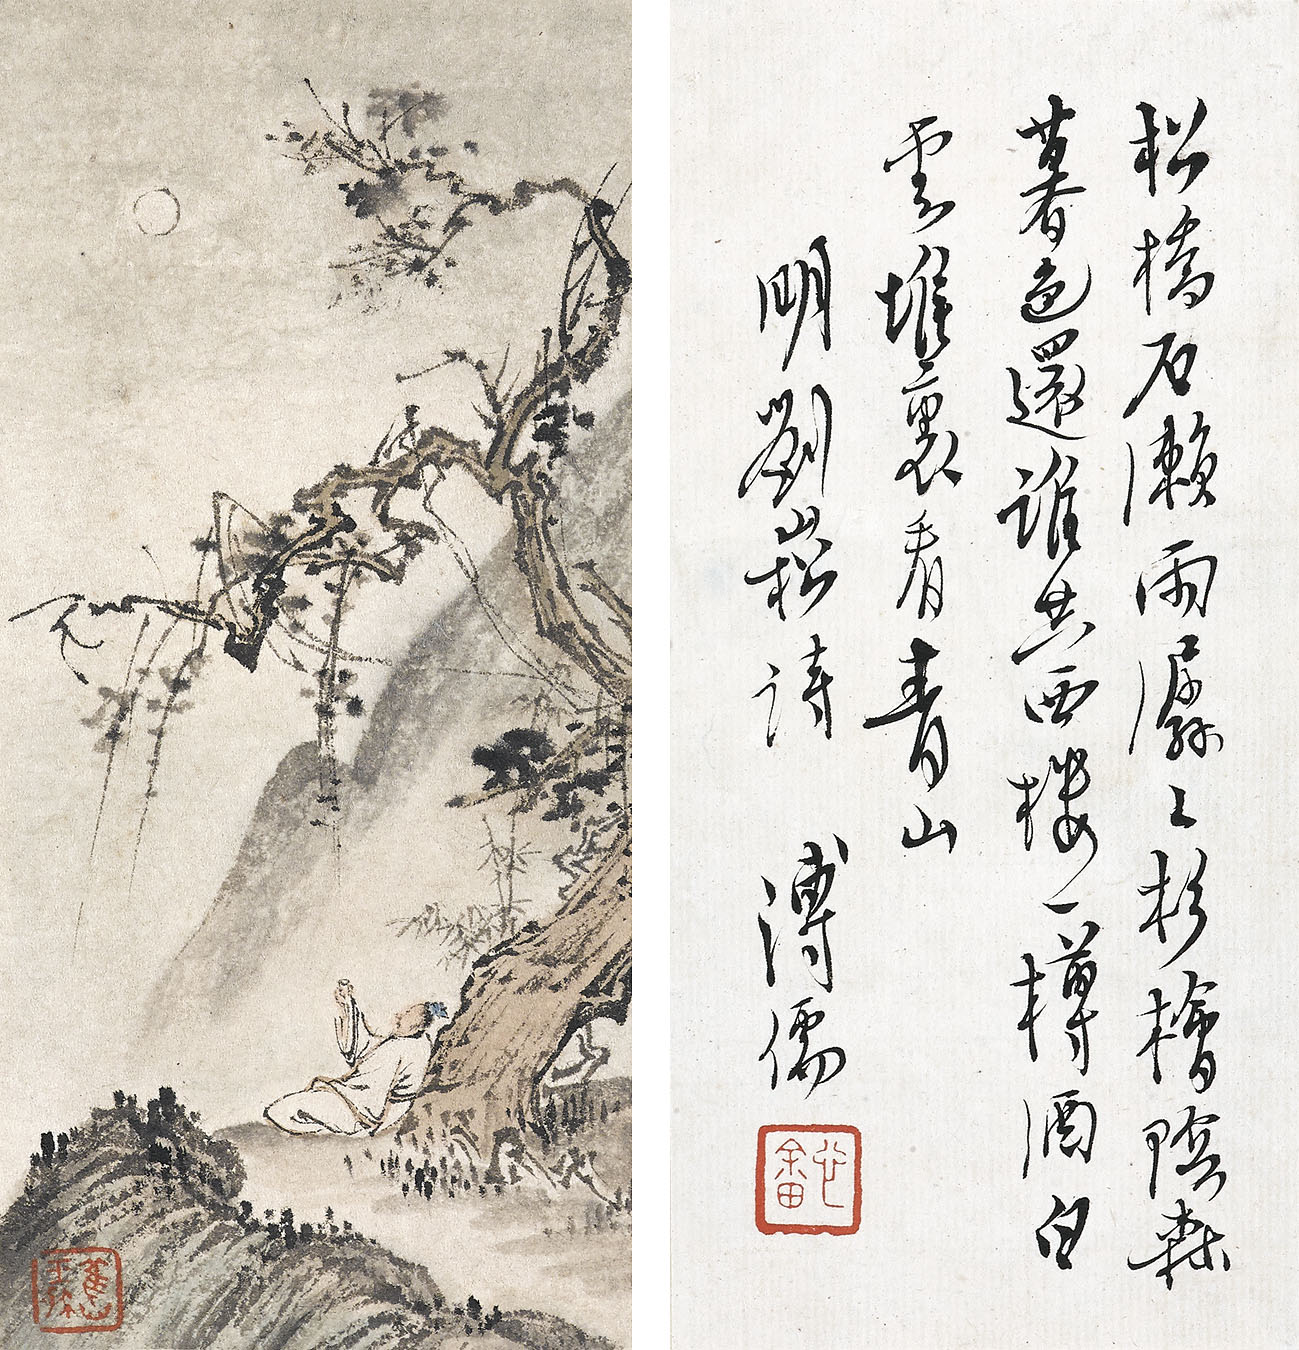 松橋石瀨雨潺々杉檜陰森
暮色還誰共西樓一樽酒白
雲堆裏看青山
明劉崧詩 溥儒
心畬
舊王孫